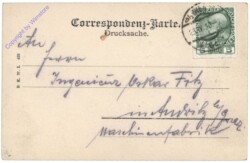 Correspondenz-Karte.
Drucksache.
An Herrn
Ingenieur Oskar Fitz
in Andritz b/Graz
Maschinenfabrik